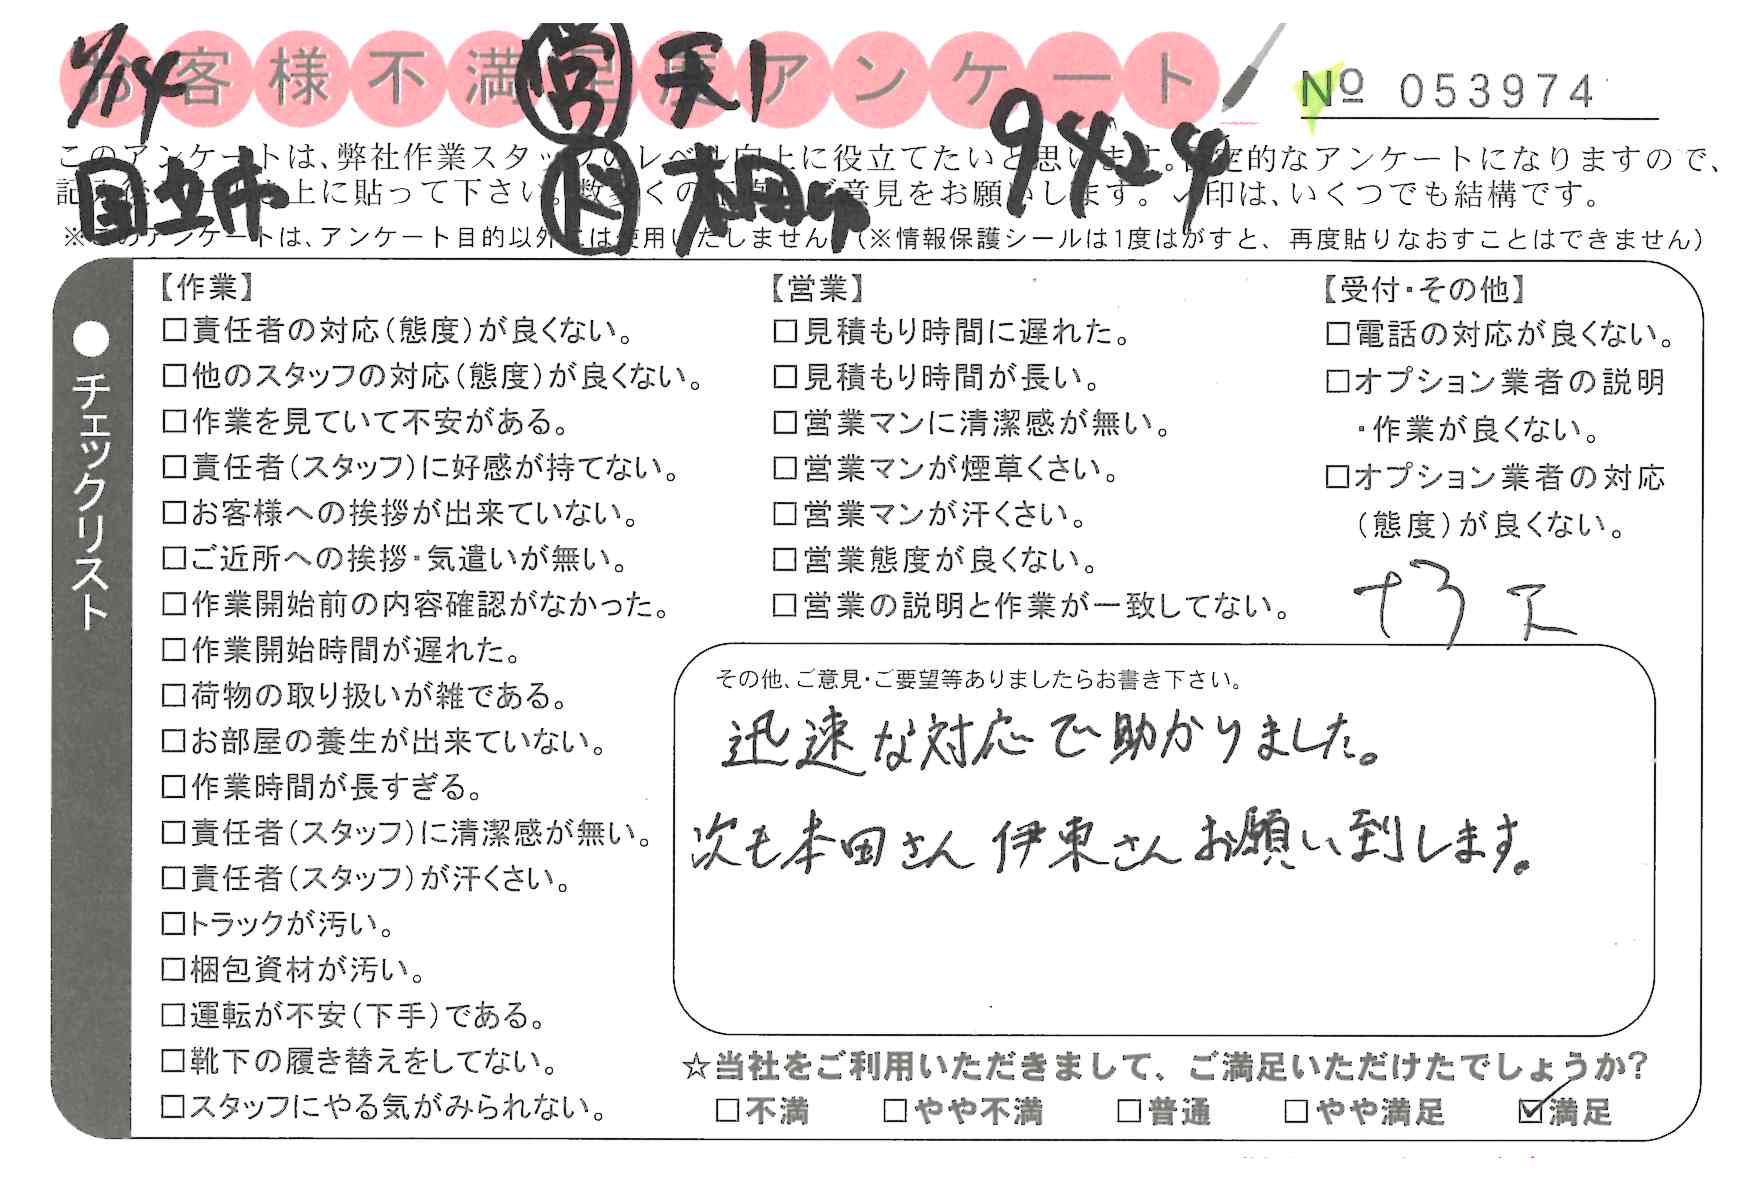 お客様不満足度アンケート
No 053974
営 天1
9424
国立市
このアンケートは、弊社作業スタッフのレベル向上に役立てたいと思います。的なアンケートになりますので、
上に貼って下さい。数多くのご意見をお願いします。✓印は、いくつでも結構です。
※このアンケートは、アンケート目的以外には使用いたしません。(※情報保護シールは1度はがすと、再度貼りなおすことはできません)
●チェックリスト
【作業】
□責任者の対応(態度)が良くない。
□他のスタッフの対応(態度)が良くない。
□作業を見ていて不安がある。
□責任者(スタッフ)に好感が持てない。
□お客様への挨拶が出来ていない。
□ご近所への挨拶・気遣いが無い。
□作業開始前の内容確認がなかった。
□作業開始時間が遅れた。
□荷物の取り扱いが雑である。
□お部屋の養生が出来ていない。
□作業時間が長すぎる。
□責任者(スタッフ)に清潔感が無い。
□責任者(スタッフ)が汗くさい。
□トラックが汚い。
□梱包資材が汚い。
□運転が不安(下手)である。
□靴下の履き替えをしてない。
□スタッフにやる気がみられない。
【営業】
□見積もり時間に遅れた。
□見積もり時間が長い。
□営業マンに清潔感が無い。
□営業マンが煙草くさい。
□営業マンが汗くさい。
□営業態度が良くない。
□営業の説明と作業が一致してない。
【受付・その他】
□電話の対応が良くない。
□オプション業者の説明
・作業が良くない。
□オプション業者の対応
(態度)が良くない。
その他、ご意見・ご要望等ありましたらお書き下さい。
迅速な対応で助かりました。
次も本田さん 伊東さんお願い到します。
☆当社をご利用いただきまして、ご満足いただけたでしょうか?
□不満 □やや不満 □普通 □やや満足 ☑満足